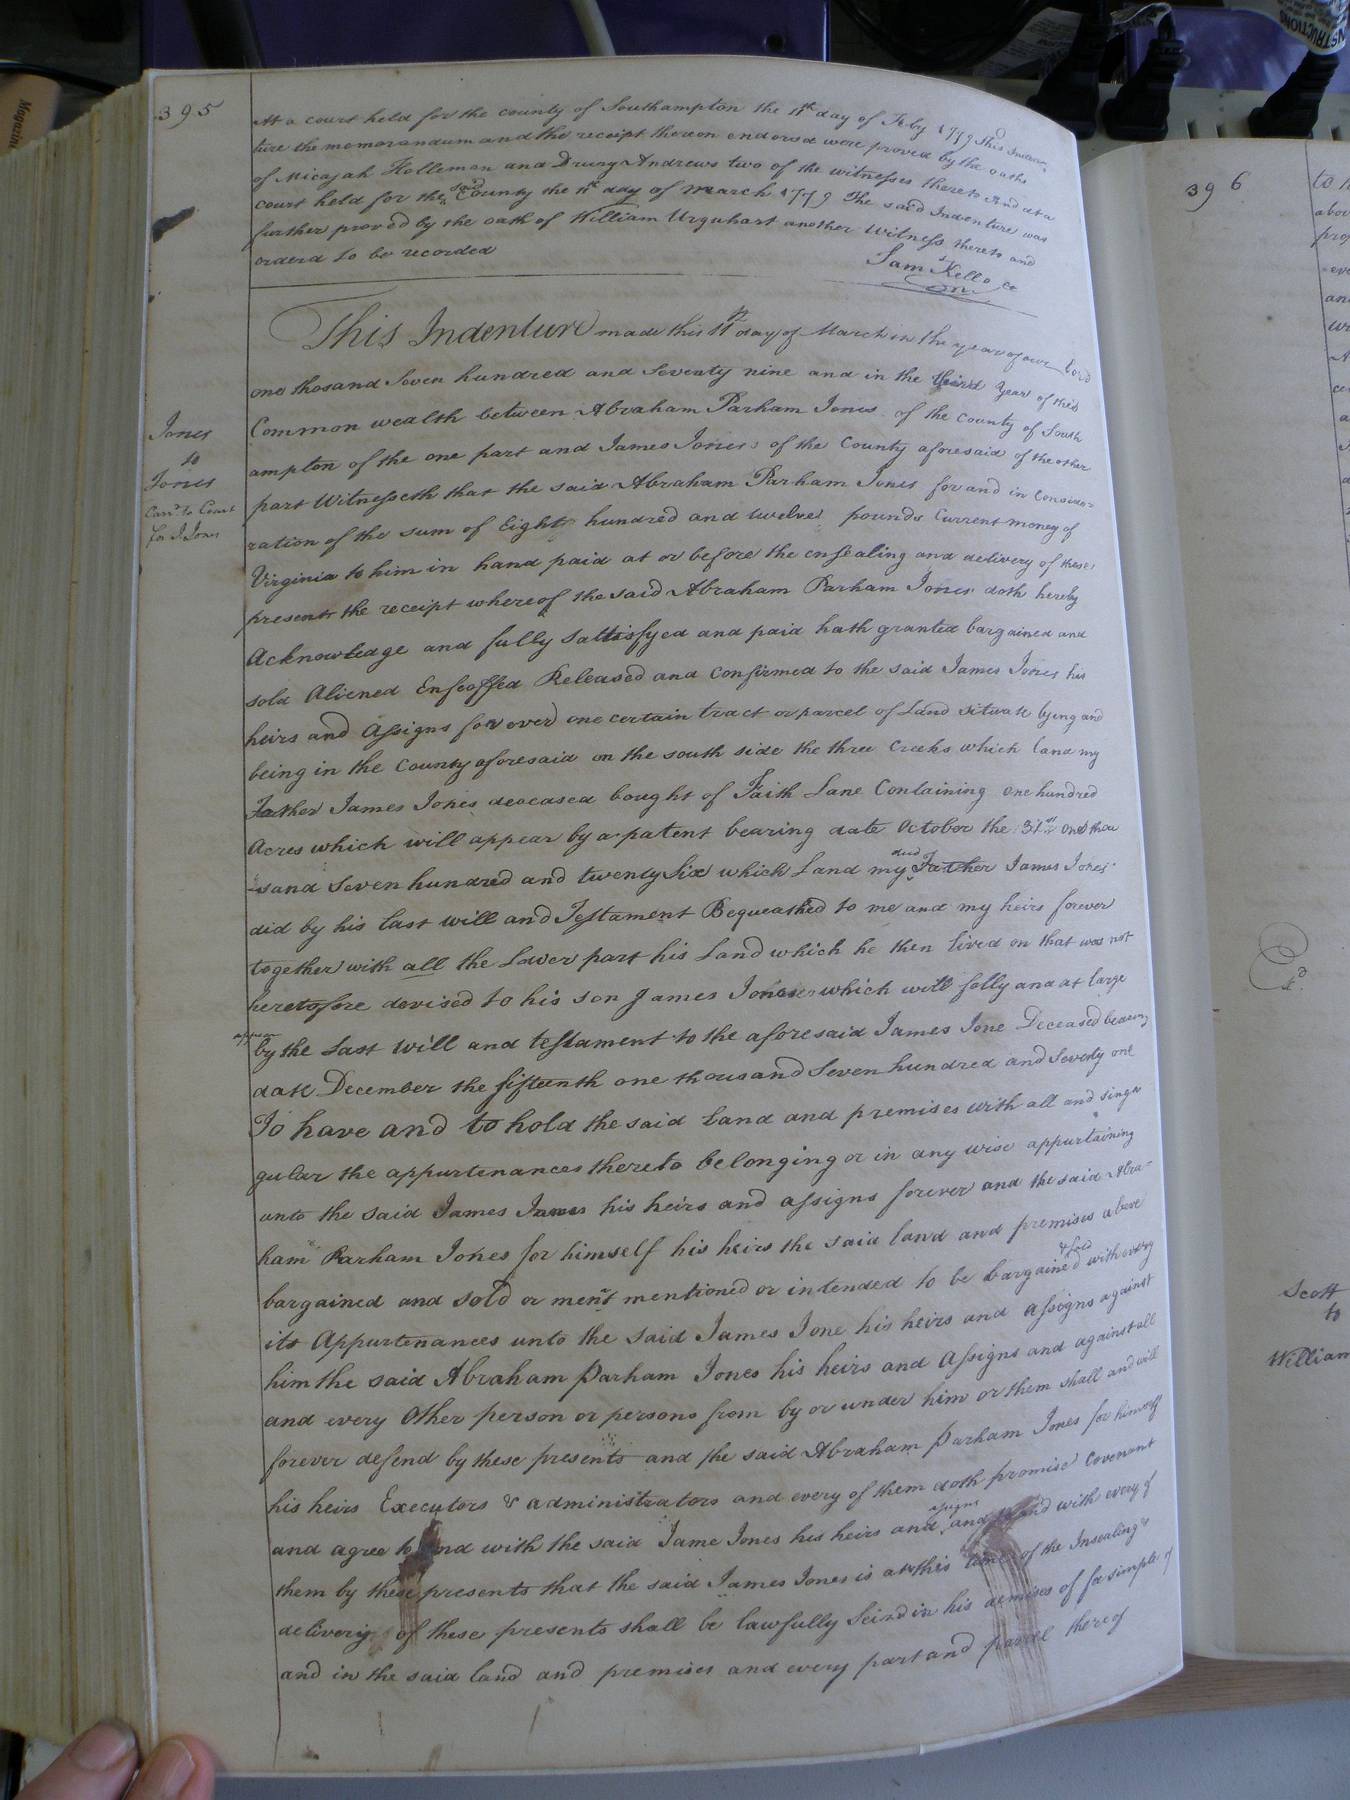 395
At a court held for the county of Southampton the 11th day of Feby 1779 This Inden
ture the memorandum and the receipt thereon endorsed were proved by the oaths
of Micajah Holleman and Drury Andrews two of the witnesses thereto And at a
court held for the said County the 11th day of march 1779 The said Indenture was
further proved by the oath of William Urquhart another Witness thereto and
orderd to be recorded
Sam Kello
This Indenture made this 11th day of March in the year of our Lord
one thosand Seven hundred and Seventy nine and in the third Year of the
Common wealth between Abraham Parham Jones of the County of South
ampton of the one part and James Jones of the County aforesaid of the other
part Witnesseth that the said Abraham Parham Jones for and in Conside=
ration of the sum of Eight hundred and twelve pounds Current money of
Virginia to him in hand paid at or before the ensealing and delivery of these
presents the receipt whereof the said Abraham Parham Jones doth hereby
Acknowledge and fully Sattisfyed and paid hath granted bargained and
sold Aliened Enfeoffed Released and Confirmed to the said James Jones his
heirs and Assigns for ever one certain tract or parcel of Land situate lying and
being in the County aforesaid on the south side the three Creeks which land my
Father James Jones deceased bought of Faith Lane Containing one hundred
Acres which will appear by a patent bearing date October the 31st one thou
-sand Seven hundred and twenty Six which Land my decd Father James Jones
did by his last will and Testament Bequeathed to me and my heirs forever
together with all the Lower part his Land which he then lived on that was not
heretofore devised to his son James Jones which will folly and at large
appear by the Last will and testament to the aforesaid James Jone Deceased bearing
date December the fifteenth one thousand Seven hundred and Seventy one
To have and to hold the said Land and premises with all and singu
gular the appurtenances thereto belonging or in any wise appurtaining
unto the said James Jones his heirs and assigns forever and the said Abra=
ham Parham Jones for himself his heirs the said land and premises above
bargained and sold or ment mentioned or intended to be bargained & sold with every
its Appurtenances unto the said James Jone his heirs and Assigns against
him the said Abraham Parham Jones his heirs and Assigns and against all
and every Other person or persons from by or under him or them shall and will
forever defend by these presents and the said Abraham Parham Jones for himself
his heirs Executors & administrators and every of them doth promise Covenant
and agree to and with the said Jame Jones his heirs and assigns and to and with every of
them by these presents that the said James Jones is at this time of the Insealing &
delivery of these presents shall be lawfully Seizd in his demises of fee simple of
and in the said land and premises and every part and parcel there of
Jones
to
Jones
Card. to Court
for J Jones
396
Scott
to
William
Magazine